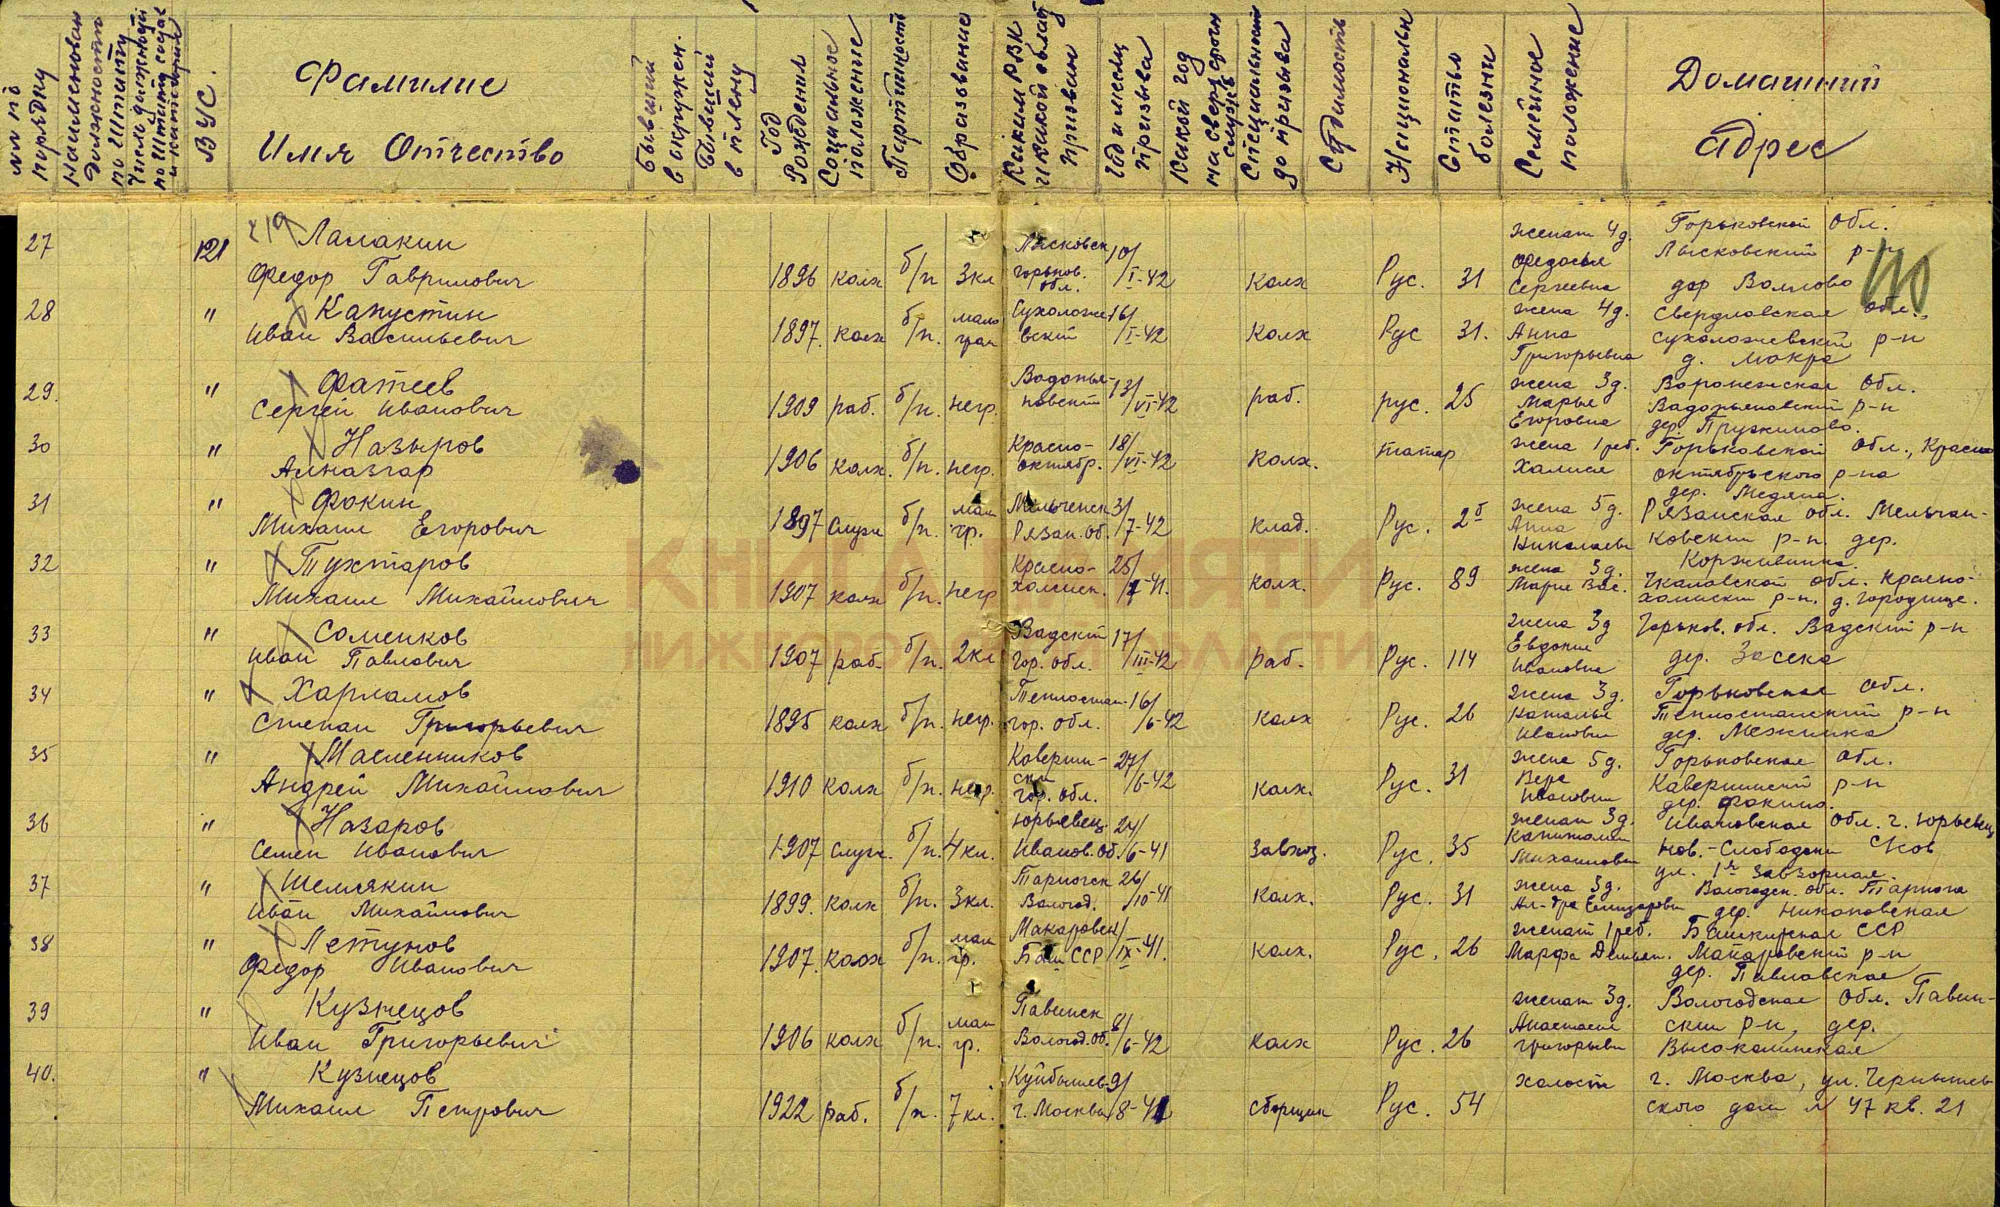 №№ по порядку
Наименован должности по штату
ВУС.
Фамилие
Имя Отчество
Бывший в окружен.
Бывший в плену
Год Рождения
Социальное положение
Партийност
Образование
Каким РВК и какой област призван
Год и месяц призыва
Какой год на сверх срочн службе
Специальность до призыва
Судимость
Национальн
Статья болезни
Семейное положение
Домашний
адрес
27 121 Ламакин Федор Гаврилович 1896 колх б/п 3кл Лысковск горьков. обл. 10/I-42 колх Рус. 31 женат 4д. Федосья Сергеевна Горьковской обл. Лысковский р-н дер Валгово
170
28 " Капустин Иван Васильевич 1897. колх б/п. мало грам Сухоложевский 16/I-42 колх Рус 31. жена 4д. Анна Григорьевна Свердловская обл., Сухоложевский р-н д. Мокра
29. " Фатеев Сергей Иванович 1909 раб. б/п. негр. Водопьяновский 13/VI-42 раб. рус. 25 жена 3д. Марья Егоровна Воронежская обл. Вадопьяновский р-н дер. Пружиново.
30 " Назыров Алназгар 1906 колх. б/п. негр. Красно-октябр. 18/VI-42 колх. татар жена 1реб. Халися Горьковской обл., Красно октябрьского р-на дер. Медяна.
31 " Фокин Михаил Егорович 1897 служ б/п. мал гр. Рязан. об. 3/7-42 клад. Рус. 25 жена 5д. Анна Николаевн Рязанская обл. р-н. дер.
32 " Тухтаров Михаил Михайлович 1907 колх б/п. негр Красно-холмск. 25/ -41. колх. Рус. 89 жена 3д. Мария Вас. Чкаловской обл. Красно-холмский р-н. д. Городище.
33 " Соменков Иван Павлович 1907 раб. б/п. 2кл Вадский гор. обл. 17/III-42 раб. Рус. 114 жена 3д Евдокия Ивановна Горьков. обл. Вадский р-н дер. Засека
34 " Харламов Степан Григорьевич 1895 колх б/п. негр. Теплостан. гор. обл. 16/6-42 колх Рус. 26 жена 3д. Наталья Ивановн Горьковская обл. Теплостанский р-н дер. Межинка
35 " Масленников Андрей Михайлович 1910 колх б/п. негр. Ковернински гор. обл. 27/6-42 колх. Рус. 31 жена 5д. Вера Ивановн Горьковская обл. Кавернинский р-н дер. Фокино.
36 " Назаров Семен Иванович 1907 служ. б/п. 4кл. Юрьевец. Иванов. об. 24/6-41 завхоз. Рус. 35 женат 3д. Михайловн Ивановская обл. г. Юрьевец ул. 1я Завзорная.
37 " Шемякин Иван Михайлович 1899. колх б/п. 3кл. Тарногск Вологод. 26/10-41 колх. Рус. 31 жена 3д. Ал-дра Елизаровн Вологодск. обл. Тарнога дер. Никоновская
38 " Летунов Федор Иванович 1907. колх б/п. мал гр. Макаровск Баш ССР /IX-41. колх. Рус. 26 женат 1реб. Марфа Демьян. Башкирская ССР Макаровский р-н дер. Павловское
39 " Кузнецов Иван Григорьевич 1906 колх б/п. мал гр. Павинск Вологод. об. 8/6-42 колх Рус. 26 женат 3д. Анастасия Григорьевн Вологодская обл. Павинский р-н, дер.
40. " Кузнецов Михаил Петрович 1922 раб. б/п. 7кл. Куйбышев г. Москвы 9/8-41 сборщик Рус. 54 холост г. Москва, ул. Чернышевского дом № 47 кв. 21
КНИГА ПАМЯТИ
НИЖЕГОРОДСКОЙ ОБЛАСТИ